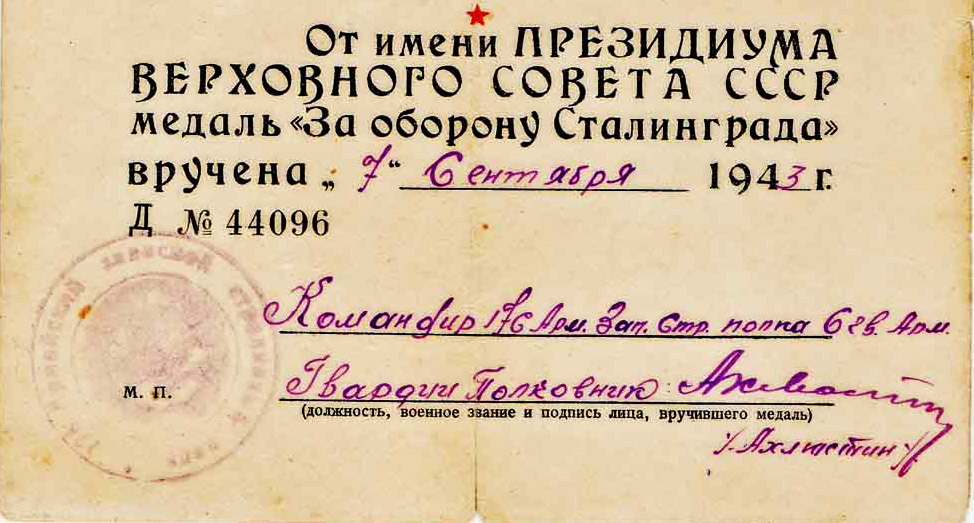 От имени ПРЕЗИДИУМА
ВЕРХОВНОГО СОВЕТА СССР
медаль «За оборону Сталинграда»
вручена „7“ Сентября 1943 г.
Д № 44096
Командир 176 Арм. Зап. Стр. полка 6 гв. Арм.
м. п.
Гвардии Полковник
(должность, военное звание и подпись лица, вручившего медаль)
/Ахлюстин/